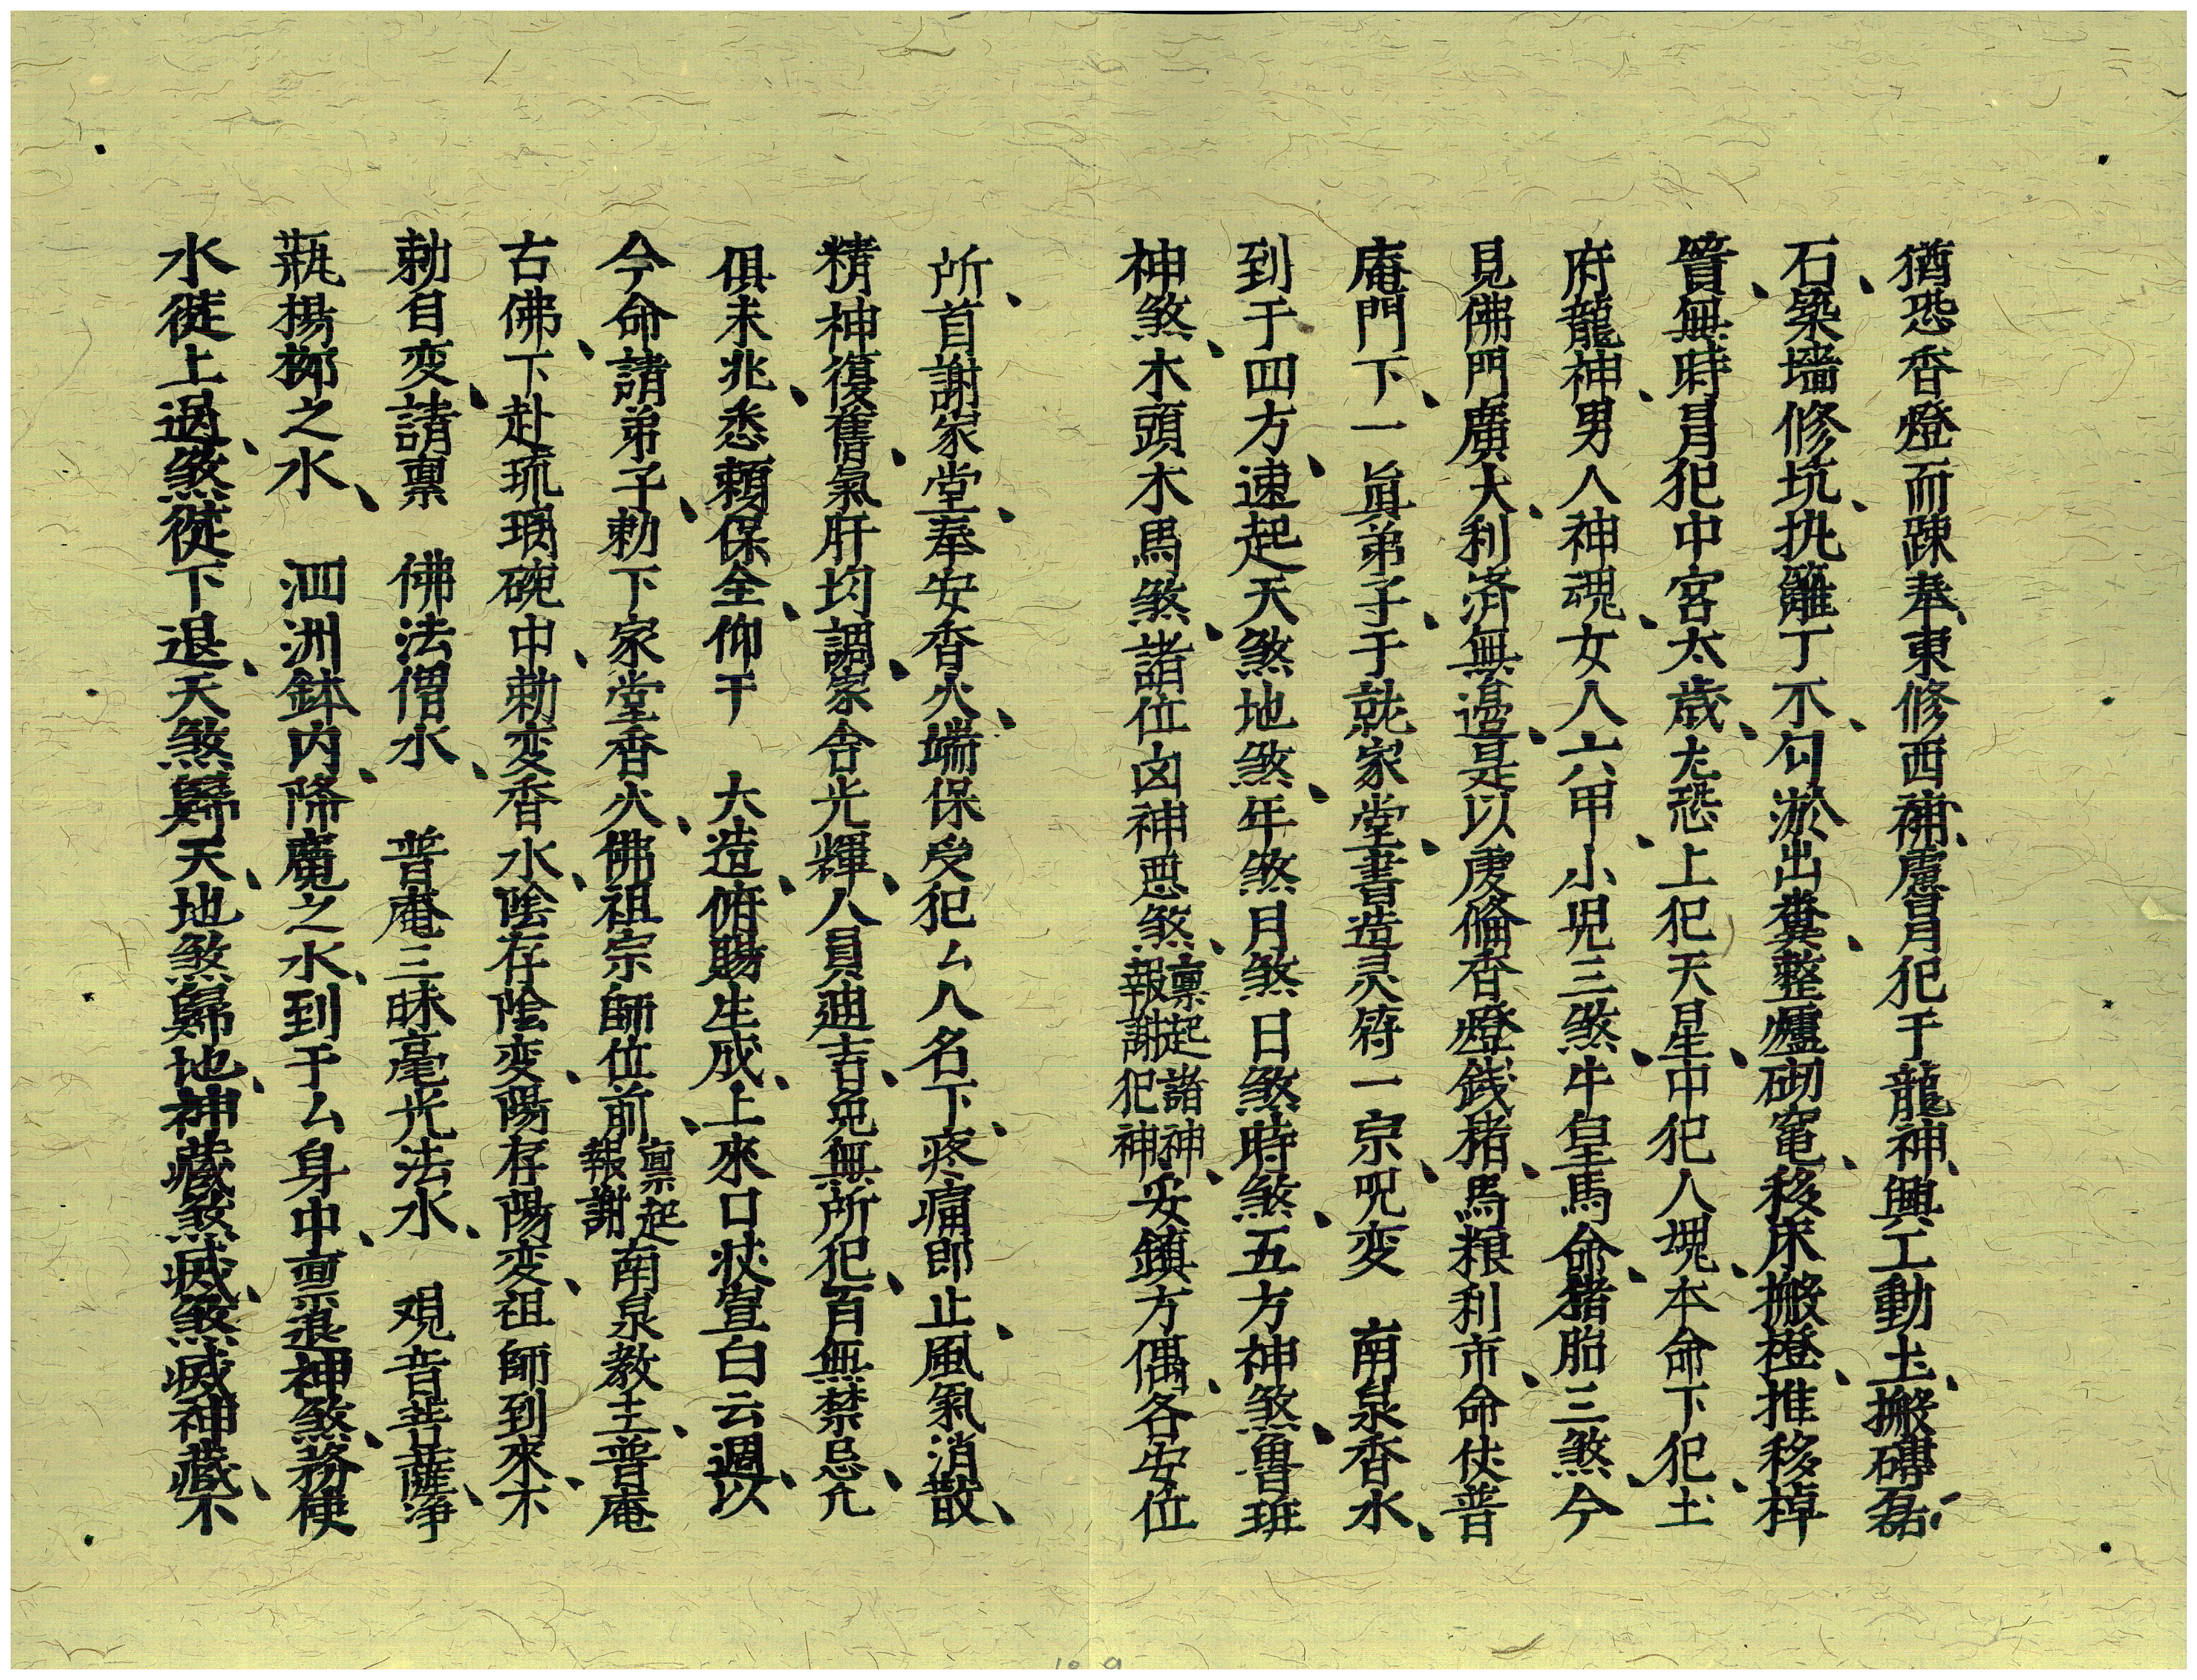 猶恐香燈而踈奉、東修西補、慮冒犯于龍神、興工動土、搬磚磊
石、築墻修坑、扎籬丁不、勻淤出糞、整爐砌竃、移床搬櫈、推移棹
簣、無時冒犯中宮太歲、尢恐上犯天星、中犯人塊、本命下犯土
府龍神、男人神魂、女人六甲、小児三煞、牛皇馬命、猪胎三煞、今
見佛門廣大、利済無邉、是以虔倫香燈錢、楮馬粮利市、命伏普
庵門下、一眞弟子、于就家堂、書造灵符一宗、呪变　南泉香水、
到于四方、速起天煞地煞、年煞月煞日煞時煞、五方神煞、魯班
神煞、木頭木馬煞、諸位凶神悪煞、禀起諸神報謝犯神、安鎮方偶、各安位
所、首謝家堂、奉安香火、端保受犯厶人名下、疼痛即止、風氣消散、
精神復舊、氣肝均調、家舎光輝、人員廸吉、免無所犯、百無禁忌、凢
俱未兆、悉頼保全、仰干　大造、俯賜生成、上來口狀宣白云週、以
今命請弟子、勅下家堂香火、佛祖宗師位前、禀起報謝南泉教主、普庵
古佛、下赴琉璃碗中、勅変香水、陰存陰变、陽存陽変、祖師到來、不
勅自変、請禀　佛法僧水、　普庵三昧毫光法水、　观音菩薩、净
瓶揚柳之水、　泗洲鉢内、降魔之水、到于厶身中、禀退神煞、務使
水徙上過、煞徙下退、天煞歸天、地煞歸地、神藏煞滅、煞滅神藏、不